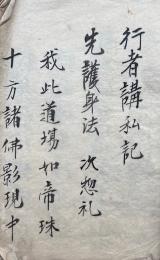 行者講私記
先護身法 次惣礼
我此道場如帝珠
十方諸佛影現中